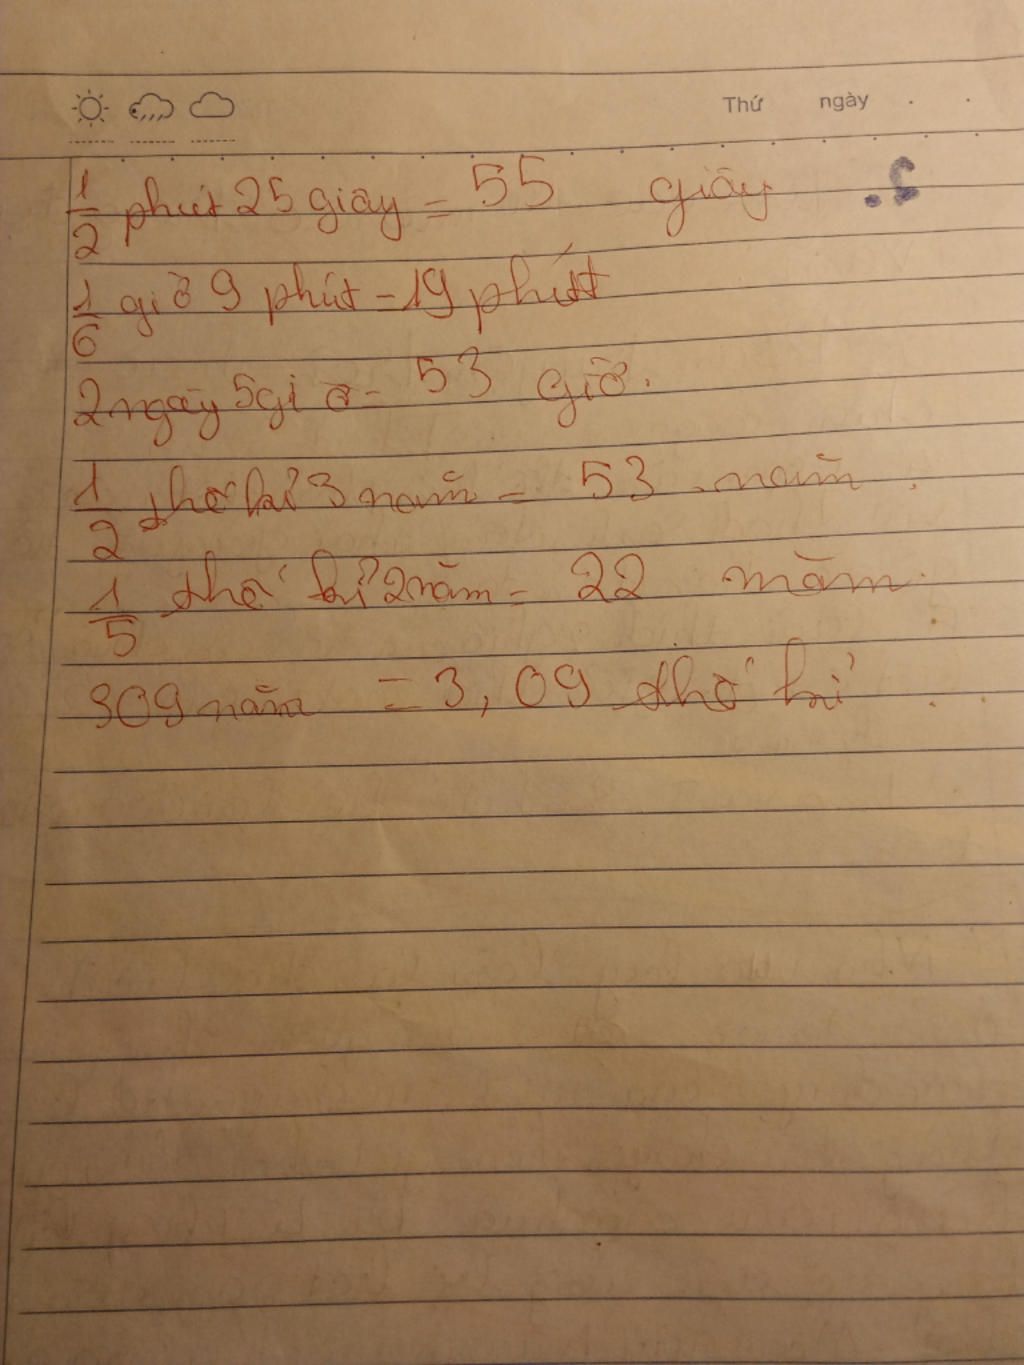 Thứ ngày
1/2 phút 25 giây = 55 giây
1/6 giờ 9 phút = 19 phút
2 ngày 5 giờ = 53 giờ.
1/2 thế kỉ 3 năm = 53 năm
1/5 thế kỉ 2 năm = 22 năm
309 năm = 3,09 thế kỉ